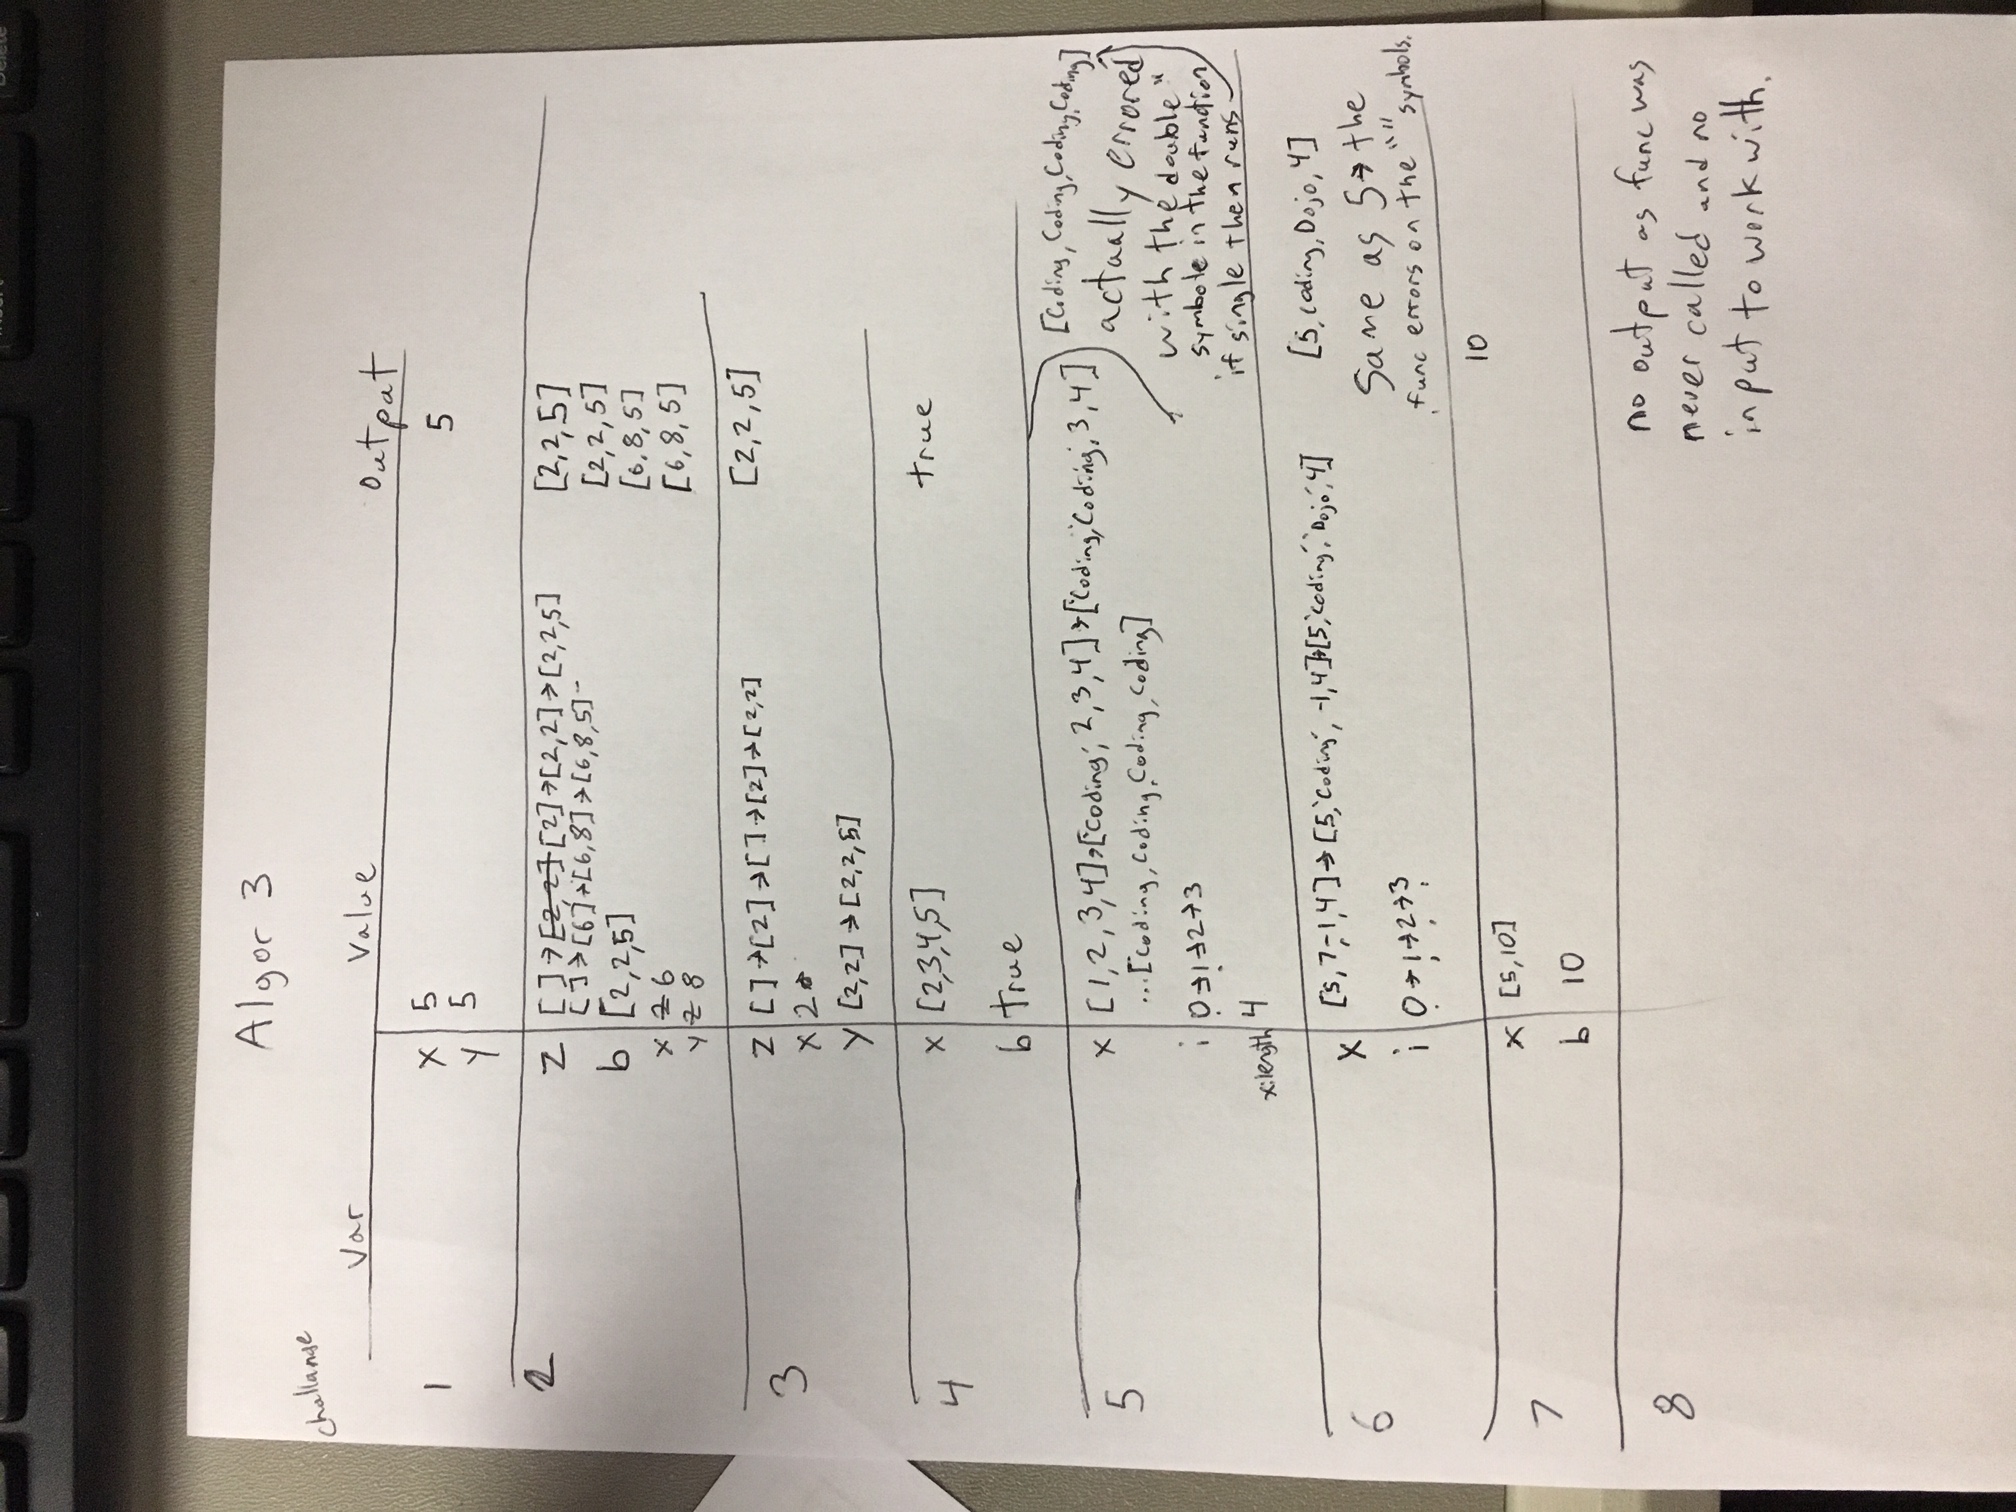 Insert
Delete
Algor 3
Challange
Var Value Output
1 x 5 5
y 5
2 z [ ]→[2,2] [2]→[2,2]→[2,2,5] [2,2,5]
[ ]→[6]→[6,8]→[6,8,5] [2,2,5]
b [2,2,5] [6,8,5]
x 2 6 [6,8,5]
y 2 8
3 z [ ]→[2]→[ ]→[2]→[2,2] [2,2,5]
x 2
y [2,2]→[2,2,5]
4 x [2,3,4,5] true
b true
5 x [1,2,3,4]→['Coding', 2,3,4]→['Coding','Coding',3,4]
...[Coding, Coding, Coding, Coding]
i 0→1→2→3
x.length 4
[Coding, Coding, Coding, Coding]
actually errored
with the double "
symbole in the function
if single then runs
6 x [5,7,-1,4]→[5,'Coding', -1,4]→[5,'Coding','Dojo',4] [5,Coding,Dojo,4]
i 0→1→2→3
Same as 5→the
func errors on the "" symbols.
7 x [5,10] 10
b 10
8 no output as func was
never called and no
input to work with.